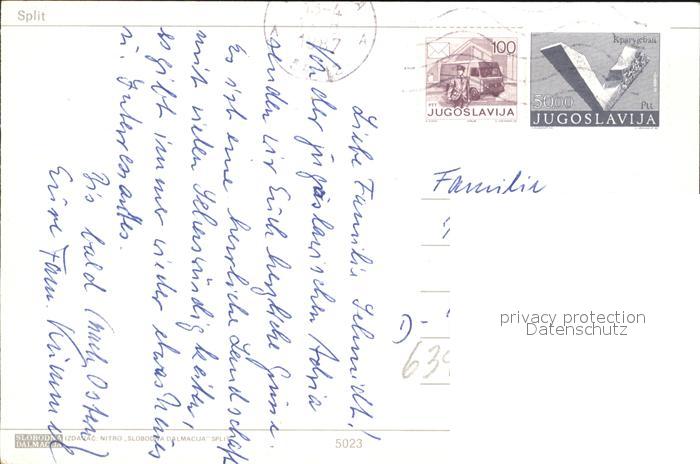 Split
100
PTT
JUGOSLAVIJA
Крагујевац
50.00
Ptt
JUGOSLAVIJA
Liebe Familie Schmidt!
Von der jugoslawischen Adria
senden wir Euch herzliche Grüsse.
Es ist eine herrliche Landschaft
mit vielen Sehenswürdigkeiten
es gibt immer wieder etwas Neues
u. Interessantes.
Bis bald (nach Ostern)
Eure Fam.
Familie
privacy protection
Datenschutz
SLOBODNA
DALMACIJA
IZDAVAČ: NITRO „SLOBODNA DALMACIJA" SPLIT
5023